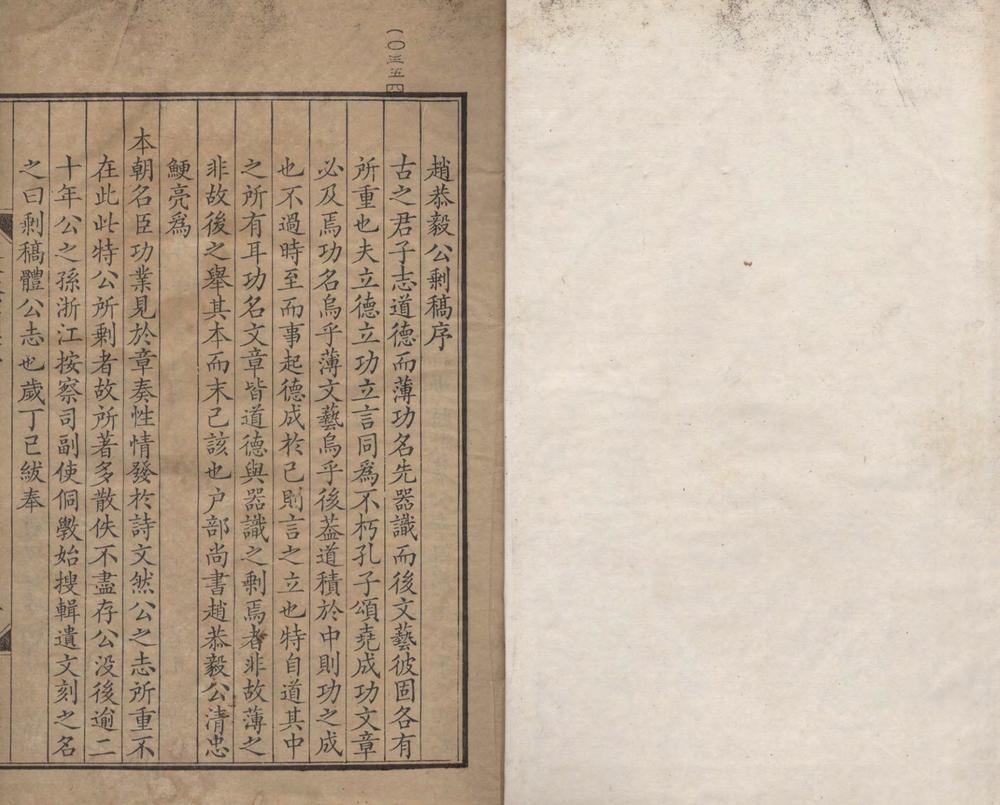 一〇三五四
趙恭毅公剩稿序
古之君子志道德而薄功名先器識而後文藝彼固各有
所重也夫立德立功立言同為不朽孔子頌堯成功文章
必及焉功名烏乎薄文藝烏乎後葢道積於中則功之成
也不過時至而事起德成於己則言之立也特自道其中
之所有耳功名文章皆道德與器識之剩焉者非故薄之
非故後之舉其本而末已該也户部尚書趙恭毅公清忠
鯁亮爲
本朝名臣功業見於章奏性情發於詩文然公之志所重不
在此此特公所剩者故所著多散佚不盡存公没後逾二
十年公之孫浙江按察司副使侗斆始搜輯遺文刻之名
之曰剩稿體公志也歲丁巳紱奉